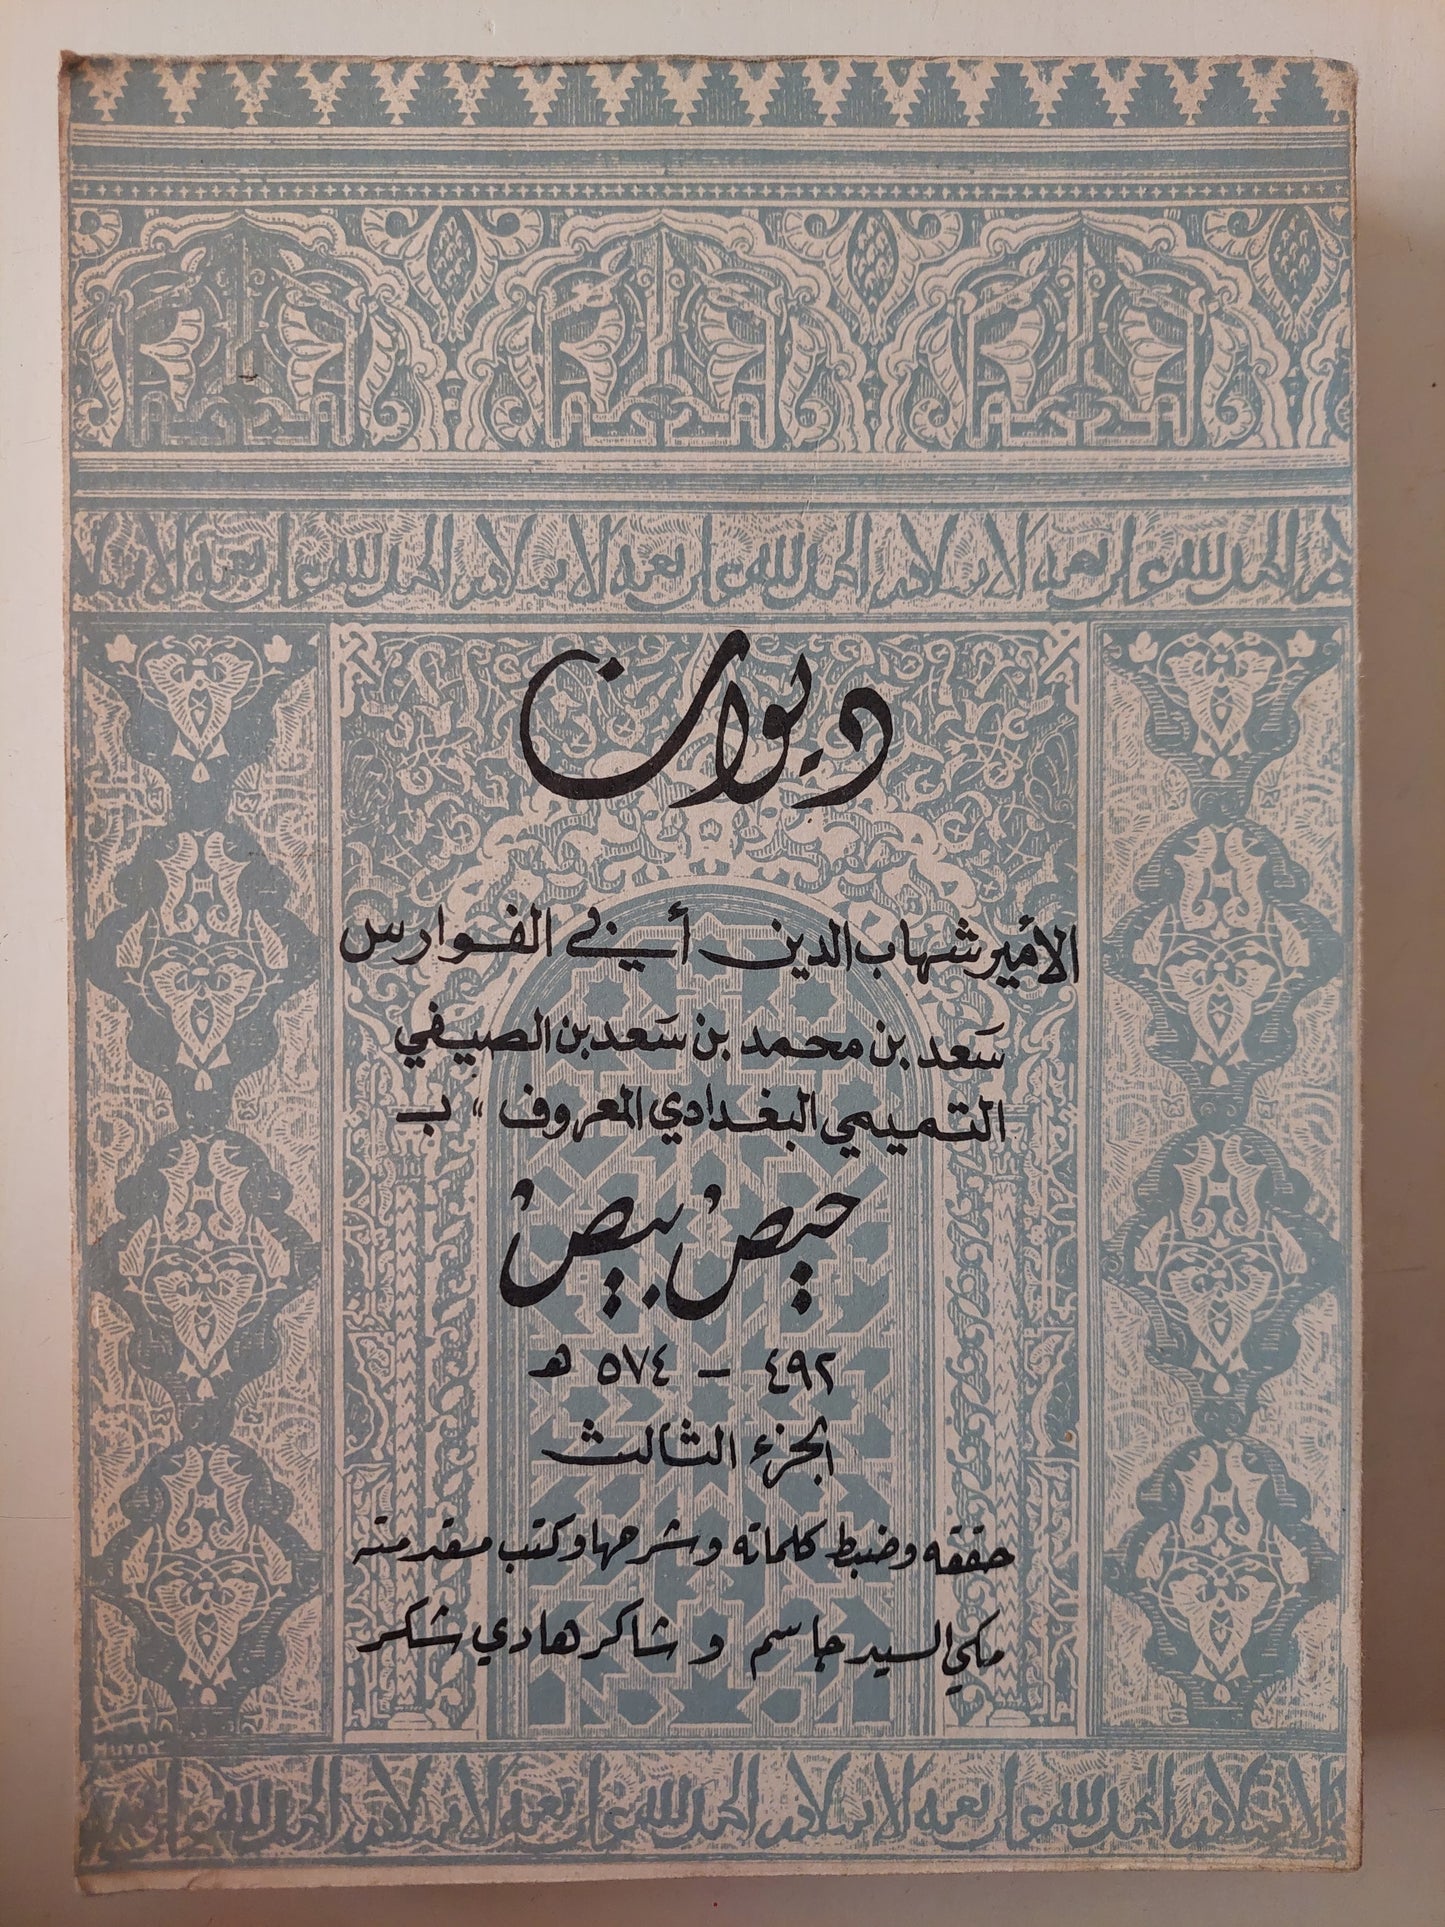 ديوان
الأمير شهاب الدين أبي الفوارس
سَعد بن محمد بن سَعد بن الصيفي
التميمي البغدادي المعروف " بـ
حيص بيص
٤٩٢ - ٥٧٤ هـ
الجزء الثالث
حققه وضبط كلماته وشرحها وكتب مقدمته
مكي السيد جاسم و شاكر هادي شكر